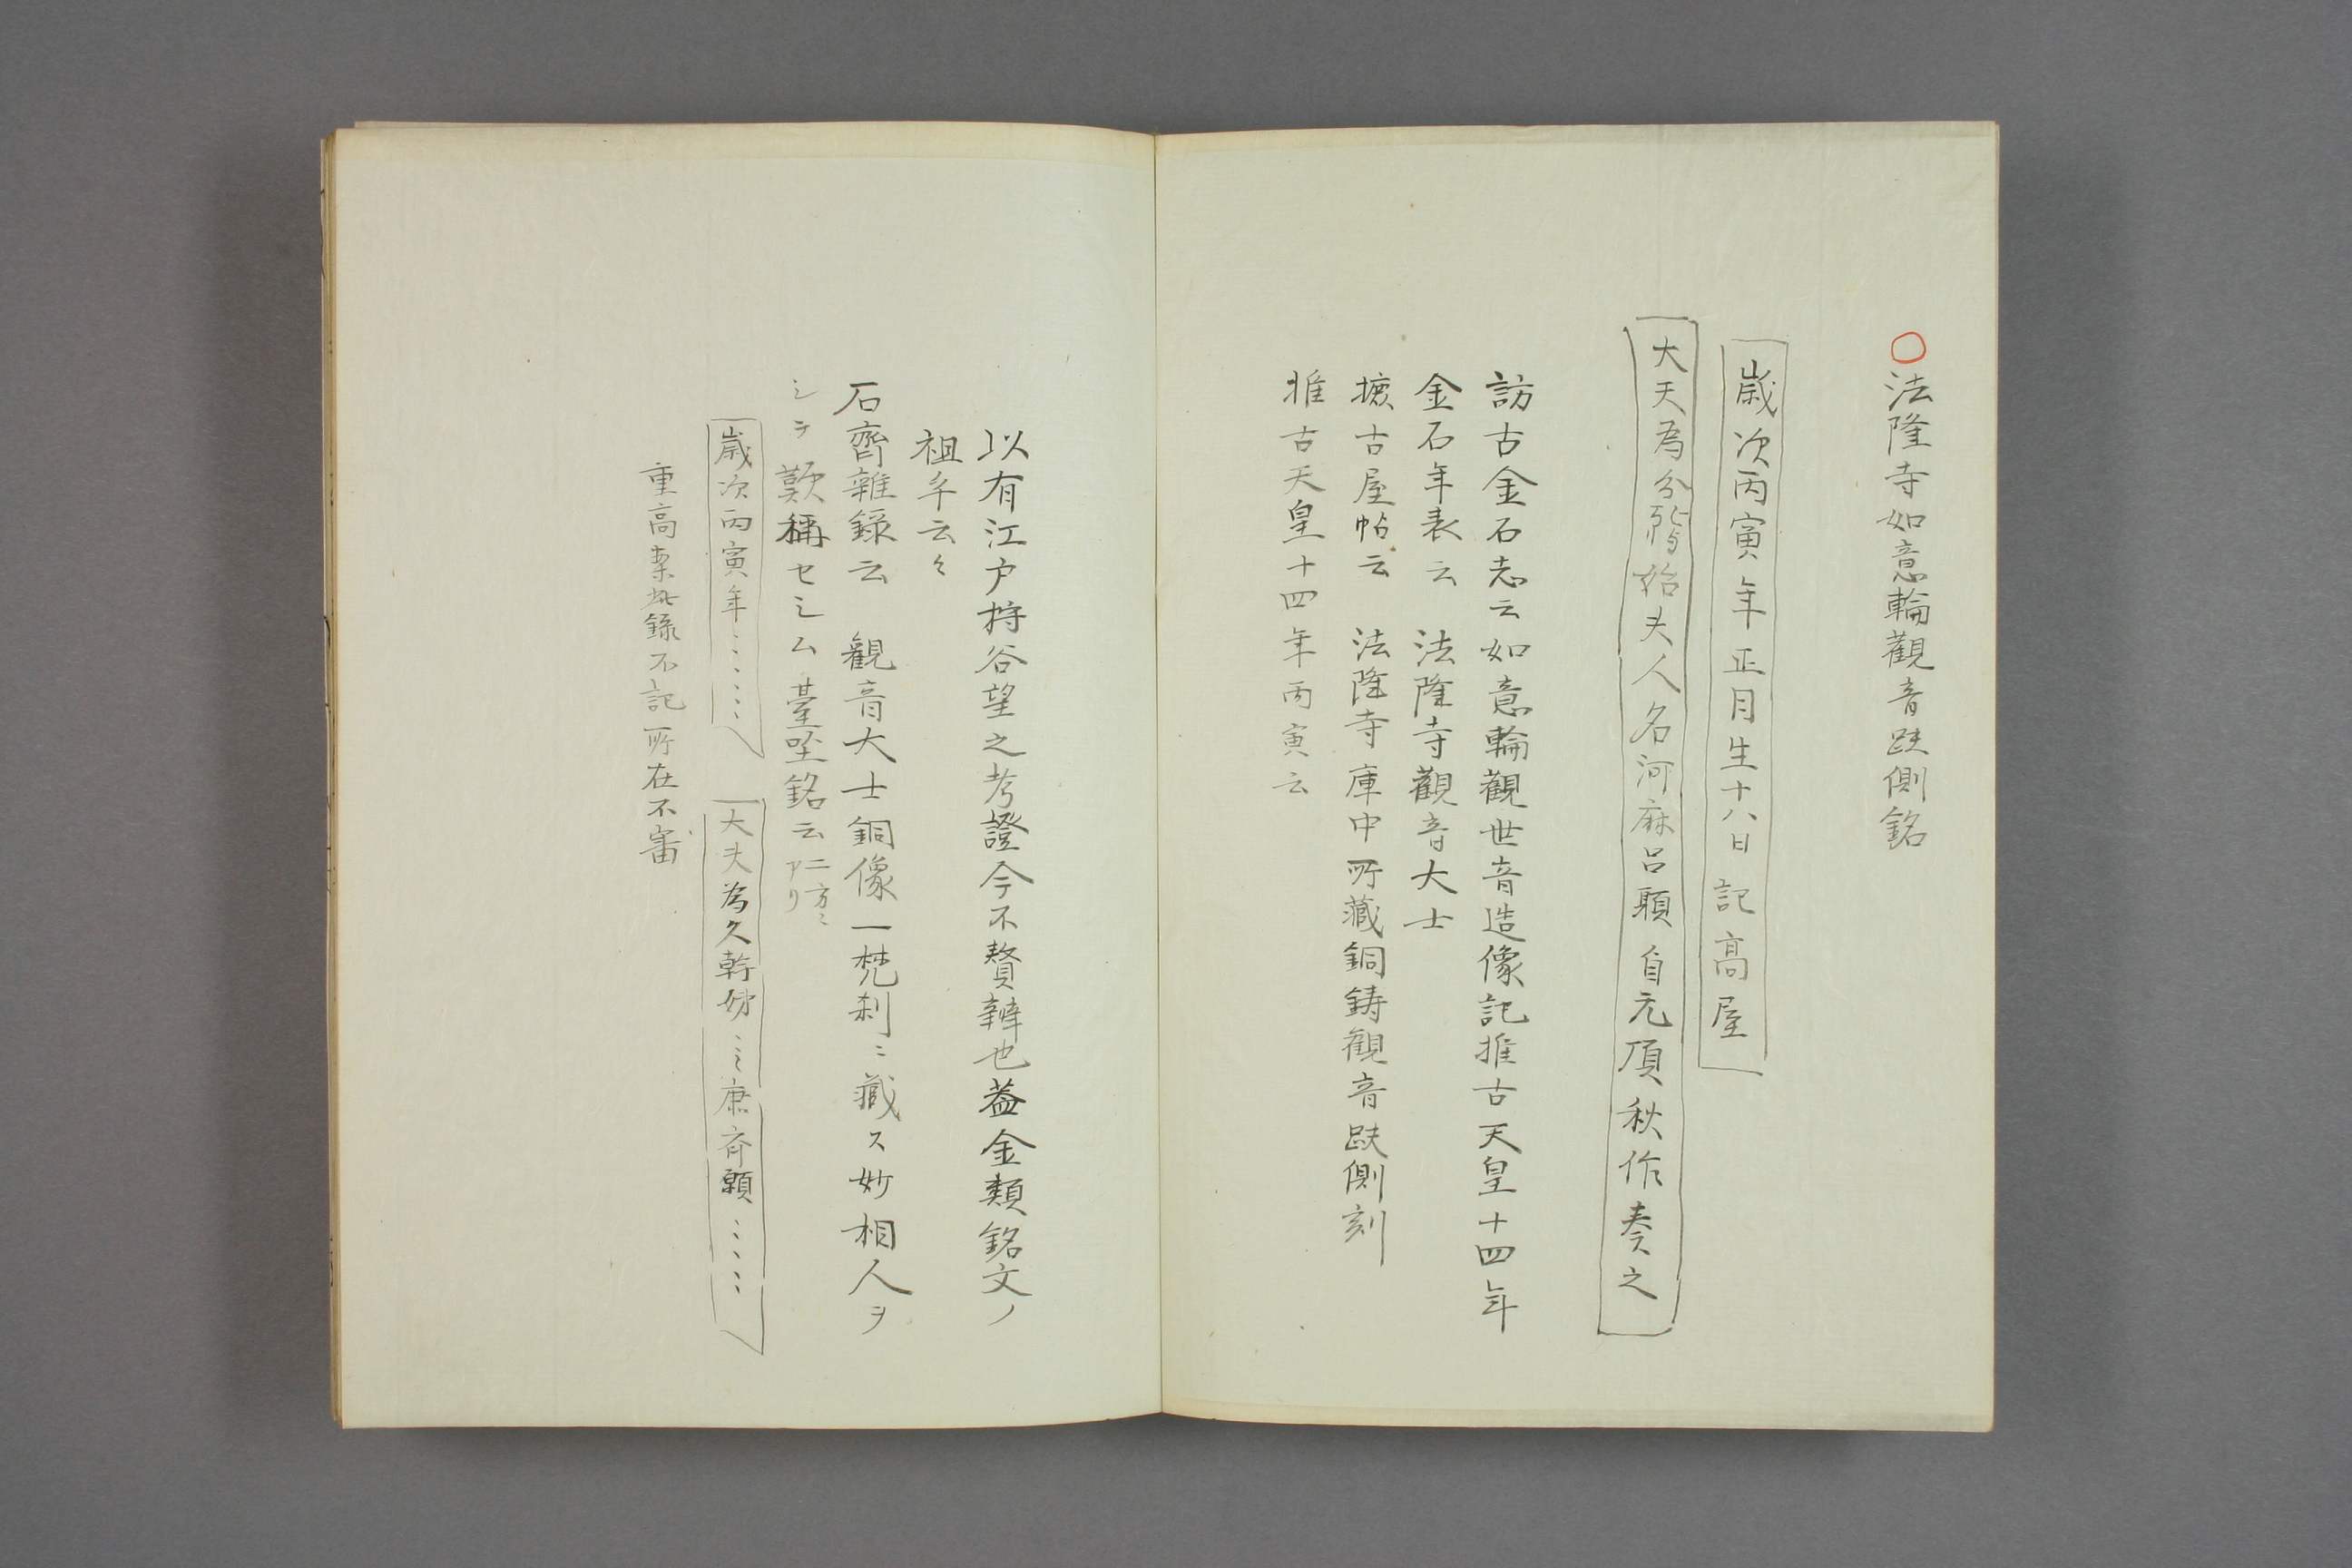 〇法隆寺如意輪觀音趺側銘
歳次丙寅年正月生十八日記高屋
大夫為分韓始夫人名河麻呂願自元頂秋作奏之
訪古金石志云如意輪觀世音造像記推古天皇十四年
金石年表云　法隆寺觀音大士
攈古屋帖云　法隆寺庫中所藏銅鋳観音趺側刻
推古天皇十四年丙寅云
以有江户狩谷望之考證今不贅辨也蓋金類銘文ノ
祖乎云々
石齋雜録云　観音大士銅像一梵刹ニ藏ス妙相人ヲ
シテ歎稱セシム臺坐銘云二方ニアリ
歳次丙寅年……　大夫為久幹姊……康斉願……
重高案此録不記所在不審